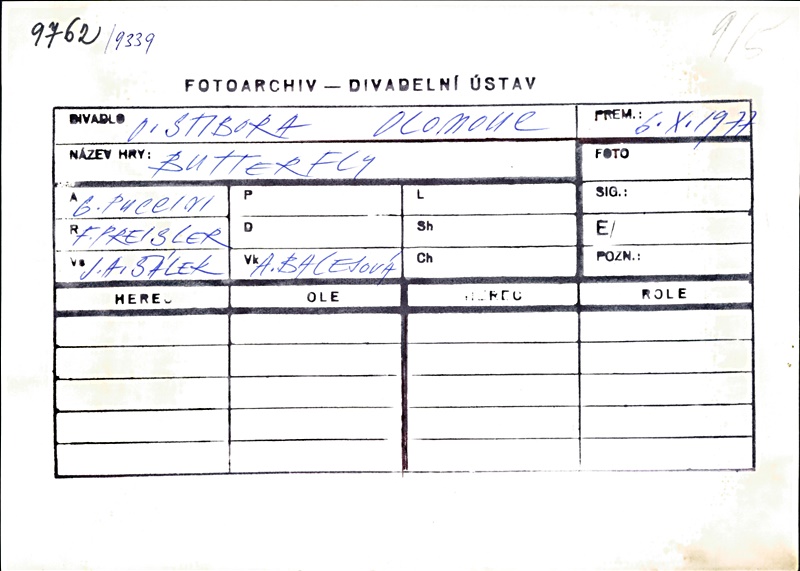 9762/9339
9/5
FOTOARCHIV — DIVADELNÍ ÚSTAV
DIVADLO O. STIBORA OLOMOUC PREM.: 6.X.1977
NÁZEV HRY: BUTTERFLY FOTO
A G. PUCCINI P L SIG.:
R F. PREISLER D Sh E/
Vs J.A. ŠÁLEK Vk A. BALEJOVÁ Ch POZN.:
HEREC OLE HEREC ROLE